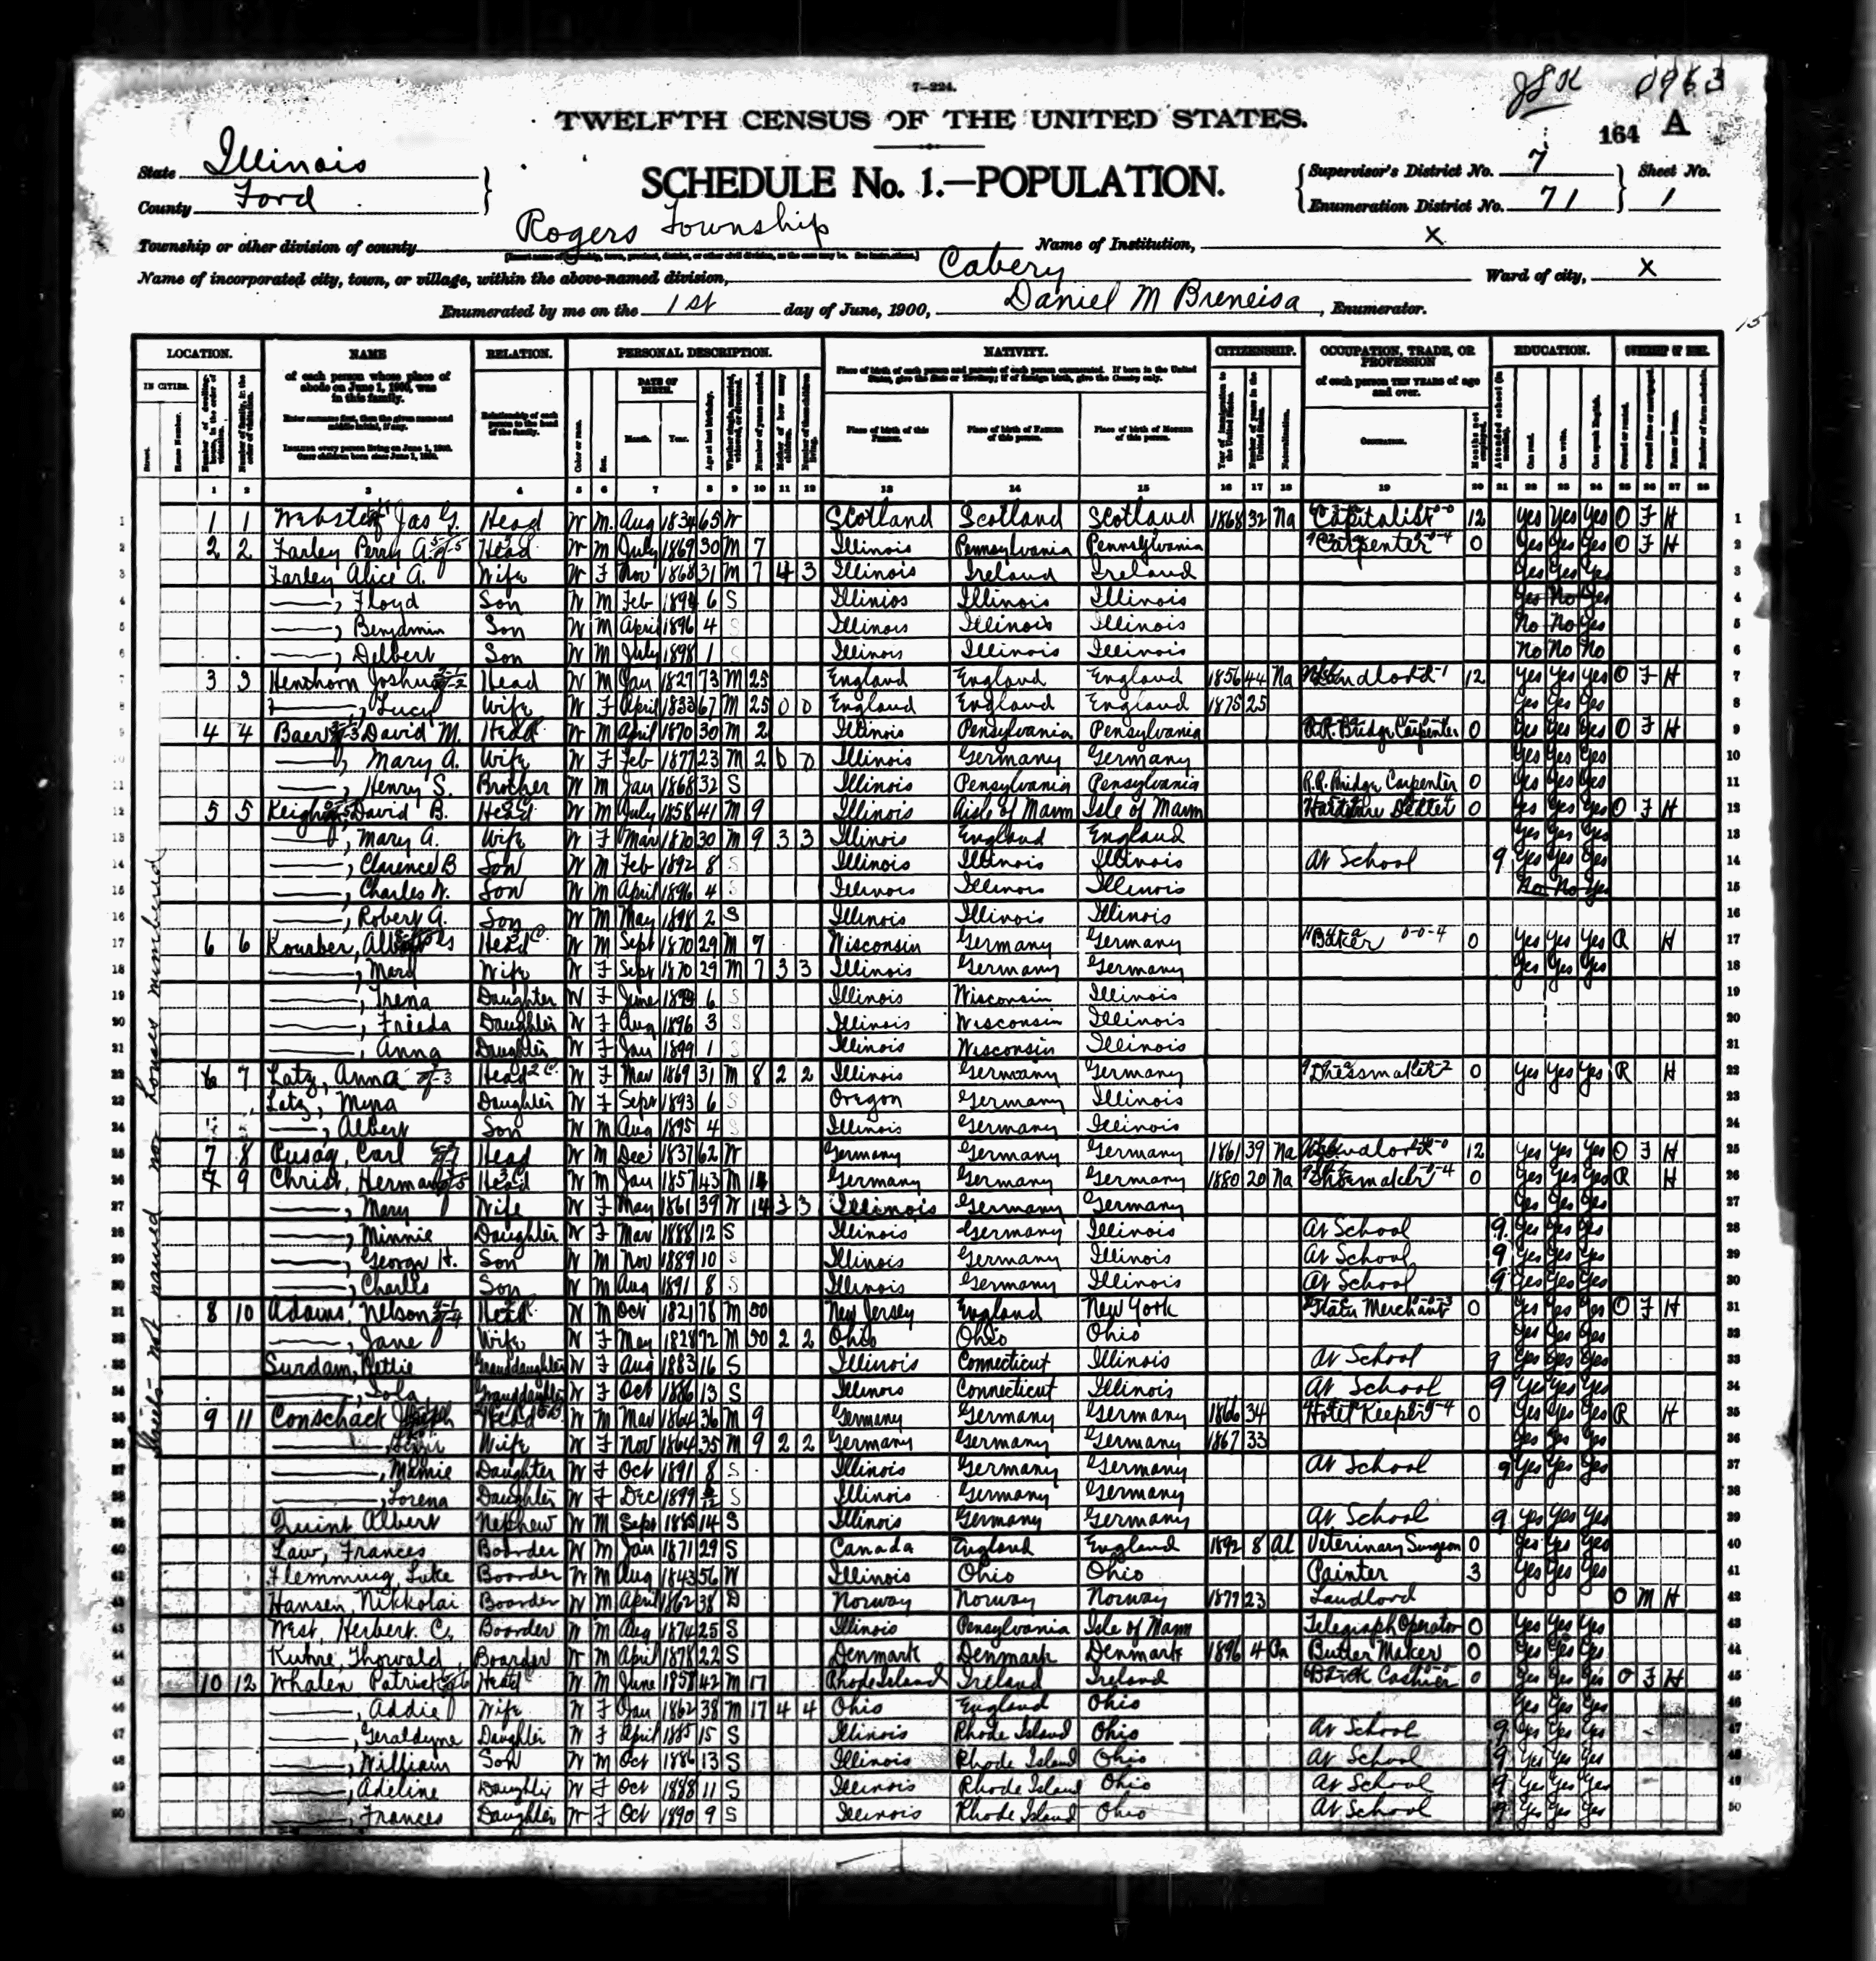 JSK 0963
7-224.
TWELFTH CENSUS OF THE UNITED STATES.
164 A
State Illinois
County Ford
SCHEDULE No. 1.—POPULATION.
Supervisor's District No. 7
Enumeration District No. 71
Sheet No. 1
Township or other division of county Rogers Township
Name of Institution, X
Name of incorporated city, town, or village, within the above-named division, Cabery
Ward of city, X
Enumerated by me on the 1st day of June, 1900, Daniel M Breneisa, Enumerator.
LOCATION. NAME RELATION. PERSONAL DESCRIPTION. NATIVITY. CITIZENSHIP. OCCUPATION, TRADE, OR PROFESSION EDUCATION.
IN CITIES. of each person whose place of abode on June 1, 1900, was in this family. DATE OF BIRTH. of each person TEN YEARS of age and over.
Month. Year. Place of birth of this Person. Place of birth of Father of this person. Place of birth of Mother of this person. Occupation.
1 2 3 4 5 6 7 8 9 10 11 12 13 14 15 16 17 18 19 20 21 22 23 24 25 26 27 28
1 1 1 Webster Jas G. Head W M Aug 1834 65 W Scotland Scotland Scotland 1868 32 Na Capitalist 12 Yes Yes Yes O F H 1
2 2 2 Farley Perry A. Head W M July 1869 30 M 7 Illinois Pennsylvania Pennsylvania Carpenter 0 Yes Yes Yes O F H 2
3 Farley Alice A. Wife W F Nov 1868 31 M 7 4 3 Illinois Ireland Ireland Yes Yes Yes 3
4 ——, Floyd Son W M Feb 1894 6 S Illinios Illinois Illinois Yes No Yes 4
5 ——, Benjamin Son W M April 1896 4 S Illinois Illinois Illinois No No Yes 5
6 ——, Delbert Son W M July 1898 1 S Illinois Illinois Illinois No No No 6
7 3 3 Henthorn Joshua Head W M Jan 1827 73 M 25 England England England 1856 44 Na Landlord 12 Yes Yes Yes O F H 7
8 ——, Lucy Wife W F April 1833 67 M 25 0 0 England England England 1875 25 Yes Yes Yes 8
9 4 4 Baer David M. Head W M April 1870 30 M 2 Illinois Pensylvania Pensylvania R.R. Bridge Carpenter 0 Yes Yes Yes O F H 9
10 ——, Mary A. Wife W F Feb 1877 23 M 2 0 0 Illinois Germany Germany Yes Yes Yes 10
11 ——, Henry S. Brother W M Jan 1868 32 S Illinois Pensylvania Pensylvania R.R. Bridge Carpenter 0 Yes Yes Yes 11
12 5 5 David B. Head W M July 1858 41 M 9 Illinois Aisle of Mann Isle of Mann Hardware Dealer 0 Yes Yes Yes O F H 12
13 ——, Mary A. Wife W F Mar 1870 30 M 9 3 3 Illinois England England Yes Yes Yes 13
14 ——, Clarence B Son W M Feb 1892 8 S Illinois Illinois Illinois At School 9 Yes Yes Yes 14
15 ——, Charles W. Son W M April 1896 4 S Illinois Illinois Illinois No No Yes 15
16 ——, Robert G. Son W M May 1898 2 S Illinois Illinois Illinois 16
17 6 6 Kourber, Head W M Sept 1870 29 M 7 Wisconsin Germany Germany Baker 0 Yes Yes Yes R H 17
18 ——, Mary Wife W F Sept 1870 29 M 7 3 3 Illinois Germany Germany Yes Yes Yes 18
19 ——, Irena Daughter W F June 1893 6 S Illinois Wisconsin Illinois 19
20 ——, Frieda Daughter W F Aug 1896 3 S Illinois Wisconsin Illinois 20
21 ——, Anna Daughter W F Jan 1899 1 S Illinois Wisconsin Illinois 21
22 6 7 Latz, Anna Head W F Mar 1869 31 M 8 2 2 Illinois Germany Germany Dressmaker 0 Yes Yes Yes R H 22
23 Letz, Myra Daughter W F Sept 1893 6 S Oregon Germany Illinois 23
24 ——, Albert Son W M Aug 1895 4 S Illinois Germany Illinois 24
25 7 8 Pusag, Carl Head W M Dec 1837 62 W Germany Germany Germany 1861 39 Na Landlord 12 Yes Yes Yes O F H 25
26 7 9 Christ, Herman Head W M Jan 1857 43 M 14 Germany Germany Germany 1880 20 Na Shoemaker 0 Yes Yes Yes R H 26
27 ——, Mary Wife W F May 1861 39 W 14 3 3 Illinois Germany Germany Yes Yes Yes 27
28 ——, Minnie Daughter W F Mar 1888 12 S Illinois Germany Illinois At School 9 Yes Yes Yes 28
29 ——, George H. Son W M Nov 1889 10 S Illinois Germany Illinois At School 9 Yes Yes Yes 29
30 ——, Charls Son W M Aug 1891 8 S Illinois Germany Illinois At School 9 Yes Yes Yes 30
31 8 10 Adams, Nelson Head W M Oct 1821 78 M 50 New Jersey England New York Merchant 0 Yes Yes Yes O F H 31
32 ——, Jane Wife W F May 1828 72 M 50 2 2 Ohio Ohio Ohio Yes Yes Yes 32
33 Surdam, Nettie Granddaughter W F Aug 1883 16 S Illinois Connecticut Illinois At School 9 Yes Yes Yes 33
34 ——, Iola Granddaughter W F Oct 1886 13 S Illinois Connecticut Illinois At School 9 Yes Yes Yes 34
35 9 11 Conschack Joseph Head W M Mar 1864 36 M 9 Germany Germany Germany 1866 34 Hotel Keeper 0 Yes Yes Yes R H 35
36 Wife W F Nov 1864 35 M 9 2 2 Germany Germany Germany 1867 33 Yes Yes Yes 36
37 ——, Mamie Daughter W F Oct 1891 8 S Illinois Germany Germany At School 9 Yes Yes Yes 37
38 ——, Lorena Daughter W F Dec 1899 S Illinois Germany Germany 38
39 Quint Albert Nephew W M Sept 1885 14 S Illinois Germany Germany At School 9 Yes Yes Yes 39
40 Law, Frances Boarder W M Jan 1871 29 S Canada England England 1892 8 Al Veterinary Surgeon 0 Yes Yes Yes 40
41 Flemming Luke Boarder W M Aug 1843 56 W Illinois Ohio Ohio Painter 3 Yes Yes Yes 41
42 Hansen, Nikkolai Boarder W M April 1862 38 D Norway Norway Norway 1877 23 Landlord O M H 42
43 West, Herbert C, Boarder W M Aug 1874 25 S Illinois Pensylvania Isle of Mann Telegraph Operator 0 Yes Yes Yes 43
44 Kuhre, Thorwald Boarder W M April 1878 22 S Denmark Denmark Denmark 1896 4 Butter Maker 0 Yes Yes Yes 44
45 10 12 Whalen Patrick Head W M June 1857 42 M 17 Rhode Island Ireland Ireland Bank Cashier 0 Yes Yes Yes O F H 45
46 ——, Addie Wife W F Jan 1862 38 M 17 4 4 Ohio England Ohio Yes Yes Yes 46
47 ——, Geraldyne Daughter W F April 1885 15 S Illinois Rhode Island Ohio At School 9 Yes Yes Yes 47
48 ——, William Son W M Oct 1886 13 S Illinois Rhode Island Ohio At School 9 Yes Yes Yes 48
49 ——, Adeline Daughter W F Oct 1888 11 S Illinois Rhode Island Ohio At School 9 Yes Yes Yes 49
50 ——, Frances Daughter W F Oct 1890 9 S Illinois Rhode Island Ohio At School 9 Yes Yes Yes 50
Streets not named nor houses numbered